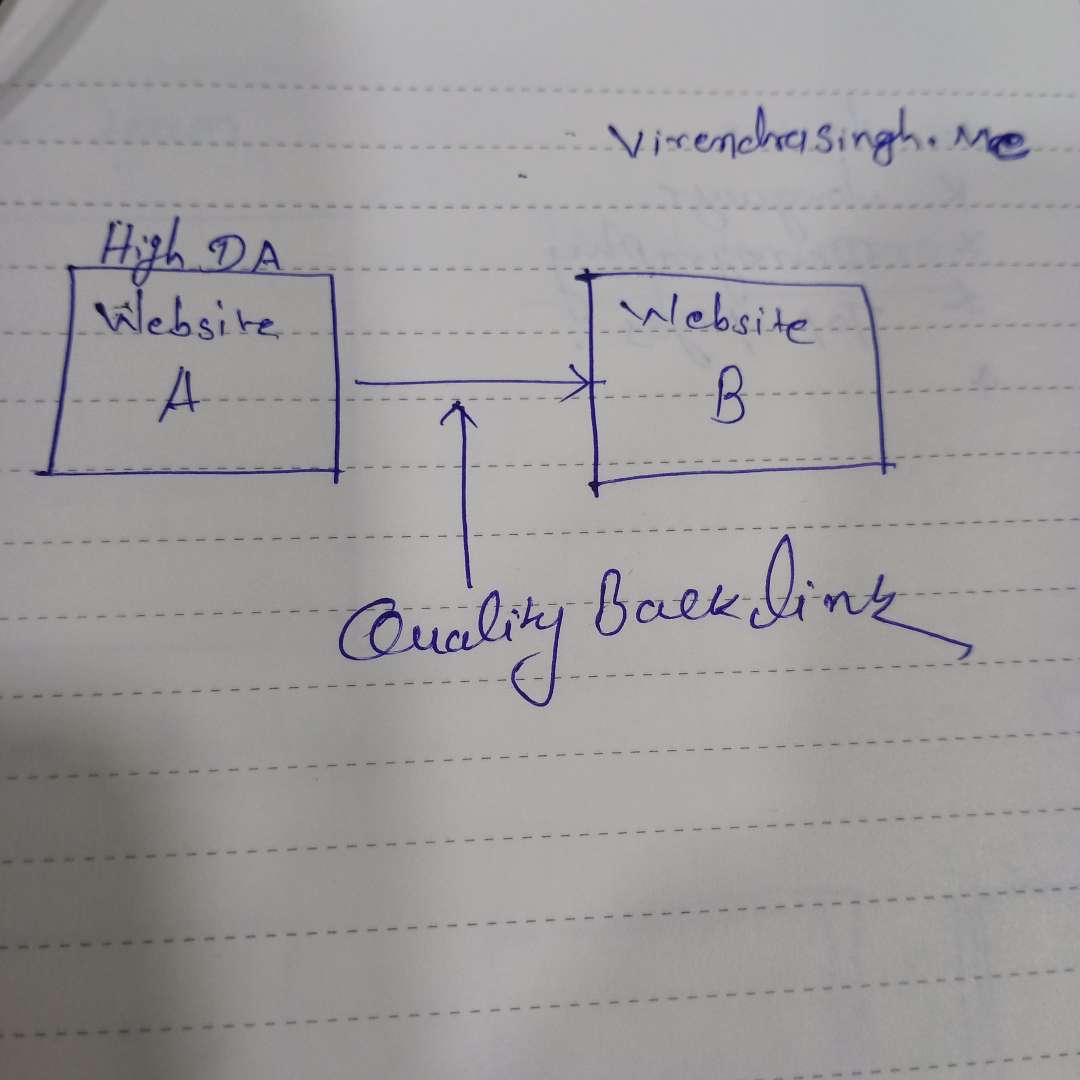 Virendrasingh.Me
High DA
Website
A
Website
B
Quality Backlink